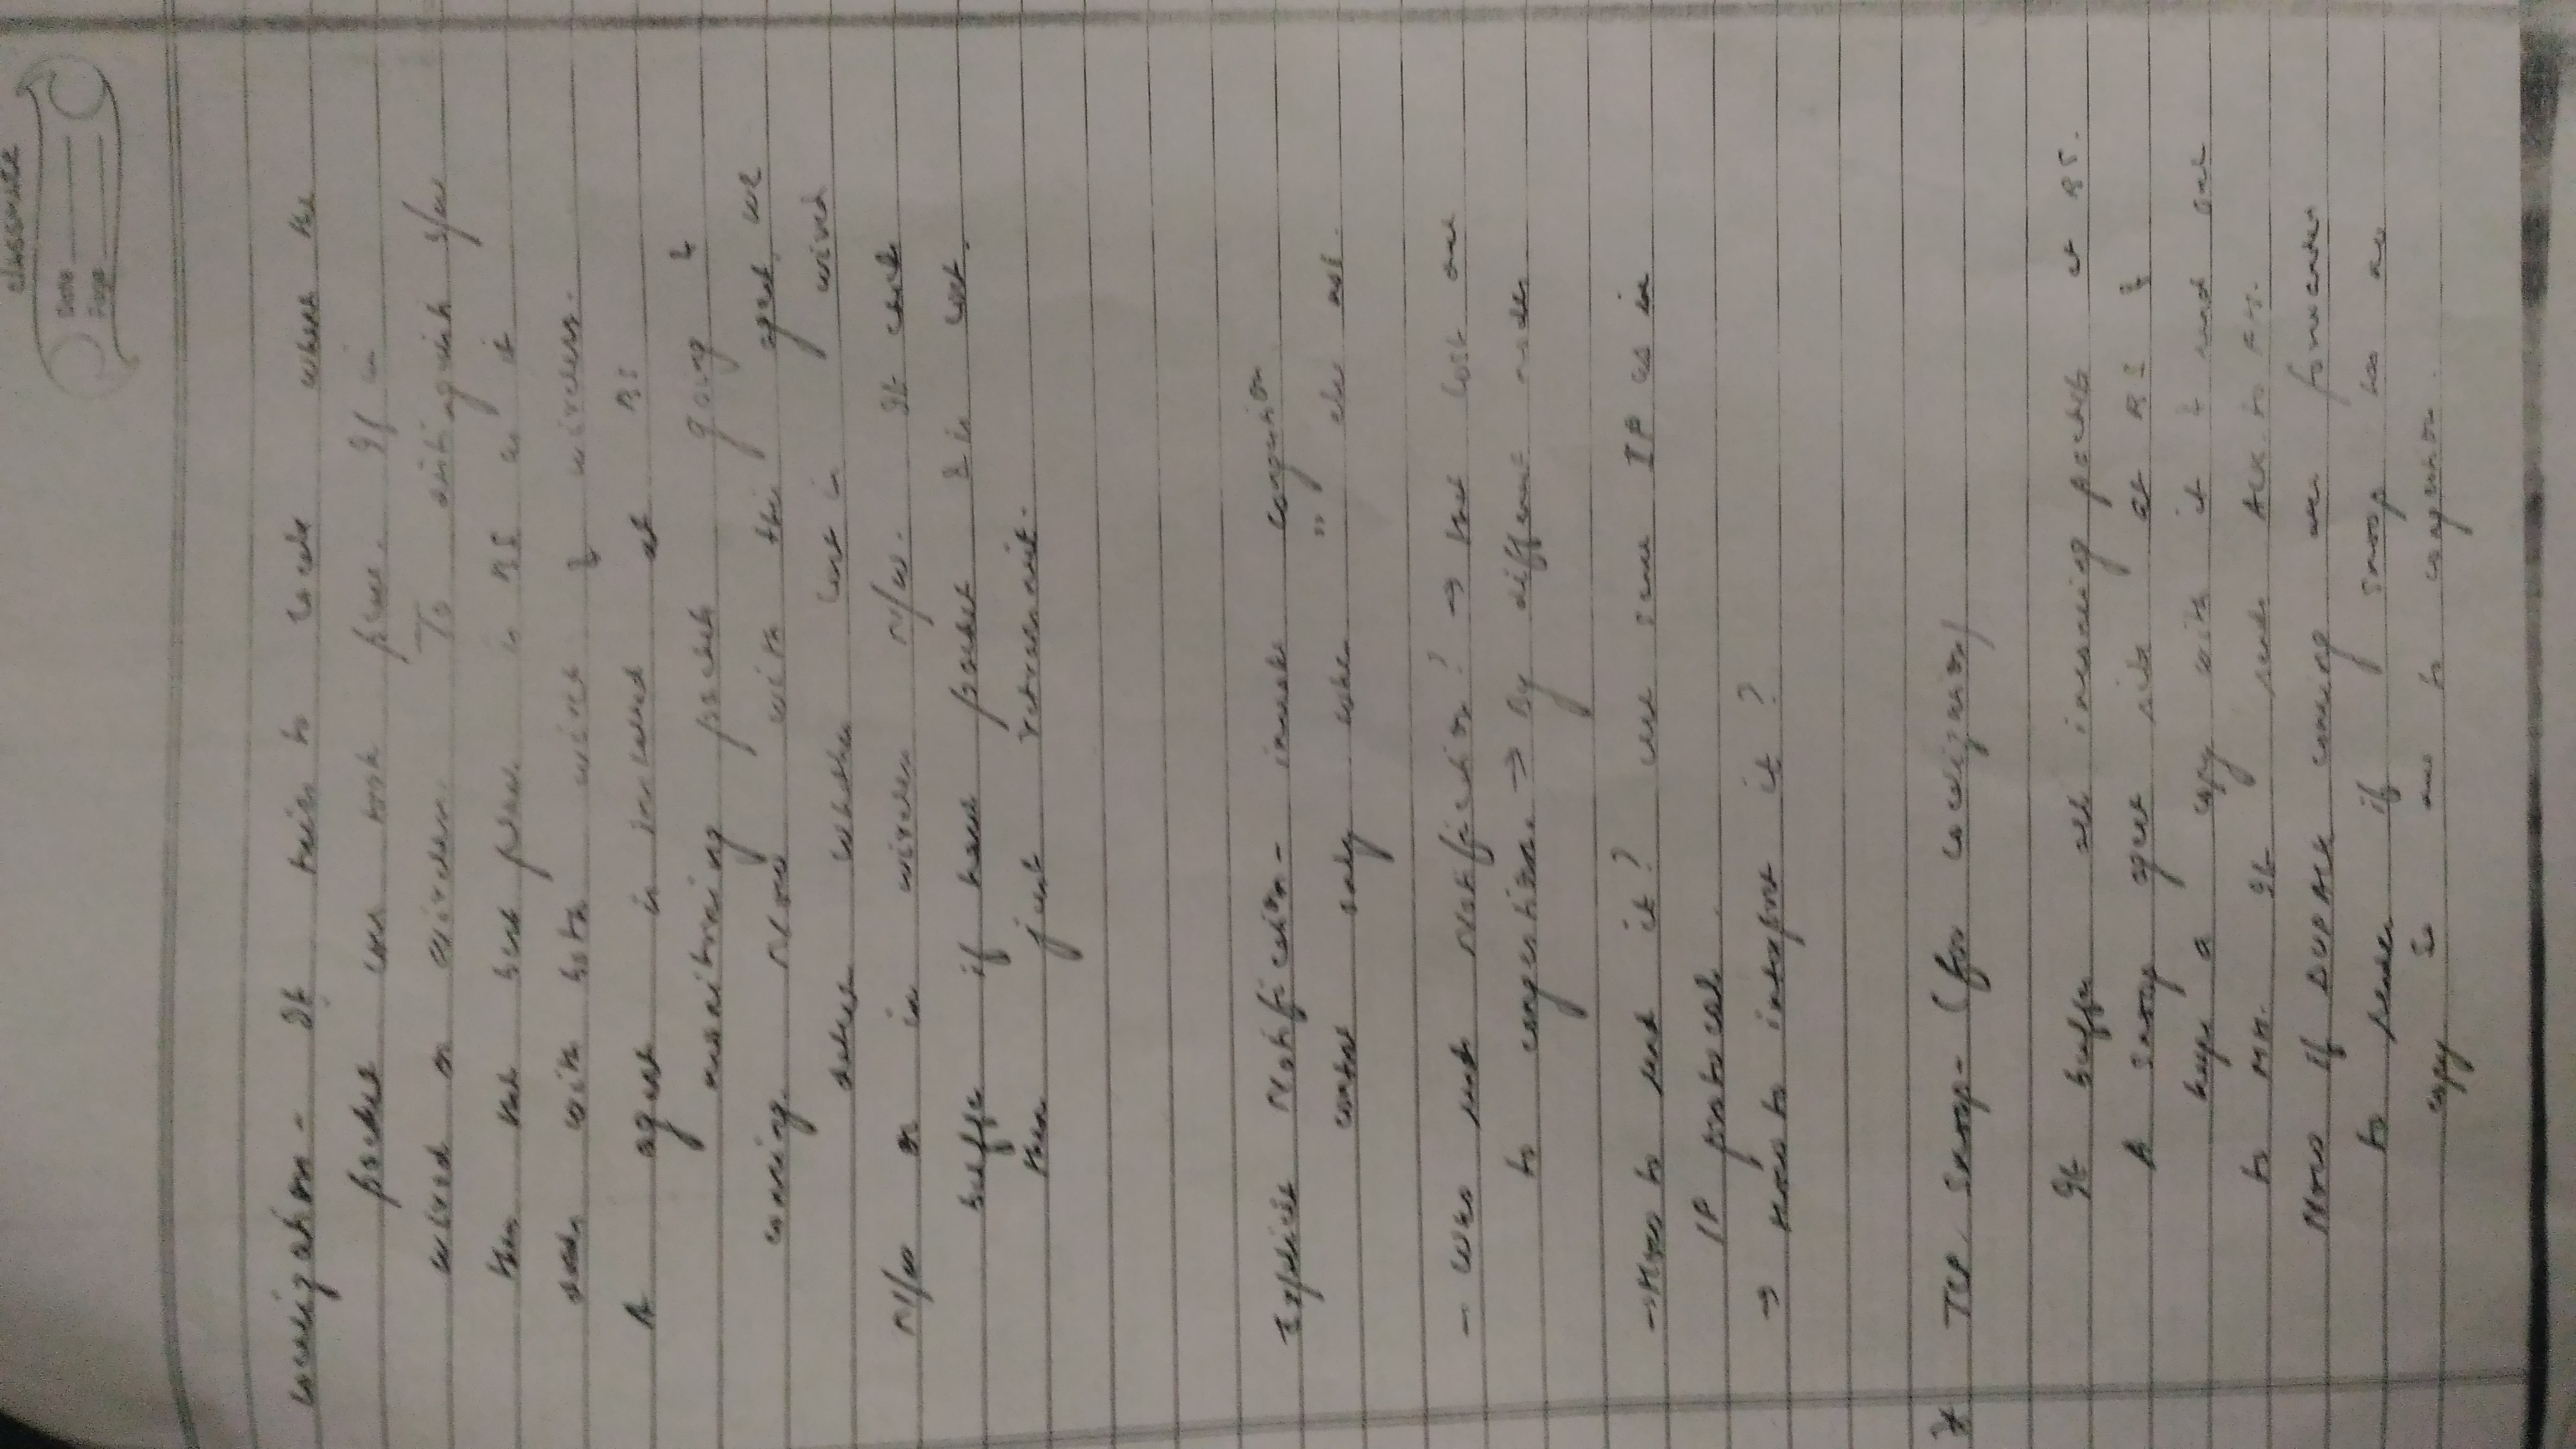 classmate
Date
Page
Localization - It tries to locate where the
packet loss took place. If in
wired or wireless. To distinguish b/w
then the best place is BS as it
deals with both wired & wireless.
A agent is installed at BS
monitoring packets going &
coming. Now with this agent, we
whether lost in wired
N/w or in wireless N/w. It can
buffer if have packet & is lost,
then just retransmit.
Explicit Notification - invoke congestion
control only when " else not.
- Who send Notification? → that lost due
to congestion. → By different nodes
→ How to send it? use same IP as in
IP protocol.
→ How to interpret it?
* TCP Snoop - (for Localization)
It buffer all incoming packets at BS.
A snoop agent sits at BS &
keeps a copy with it & send one
to MH. It sends ACK to FH.
Now if DUPACK coming are forwarded
to sender if snoop has no
copy So due to congestion.